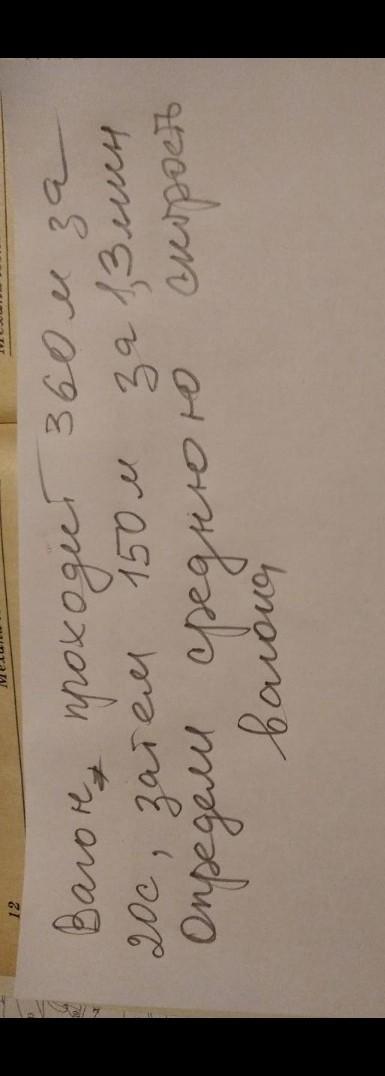 Вагон проходит 360 м за
20с, затем 150 м за 1,3 мин
Определи среднюю скорость
вагона
12